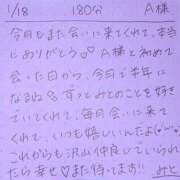 1/18 180分 A様
今月もまた会いに来てくれて、本当
にありがとう♡A様と初めて
会った日から、今日で半年に
なるね ずっとみとのことを好き
でいてくれて、毎月会いに来て
くれて、いつも嬉しいんだよ(
これからも沢山仲良していられ
たら幸せ♡また待ってます!!
みと